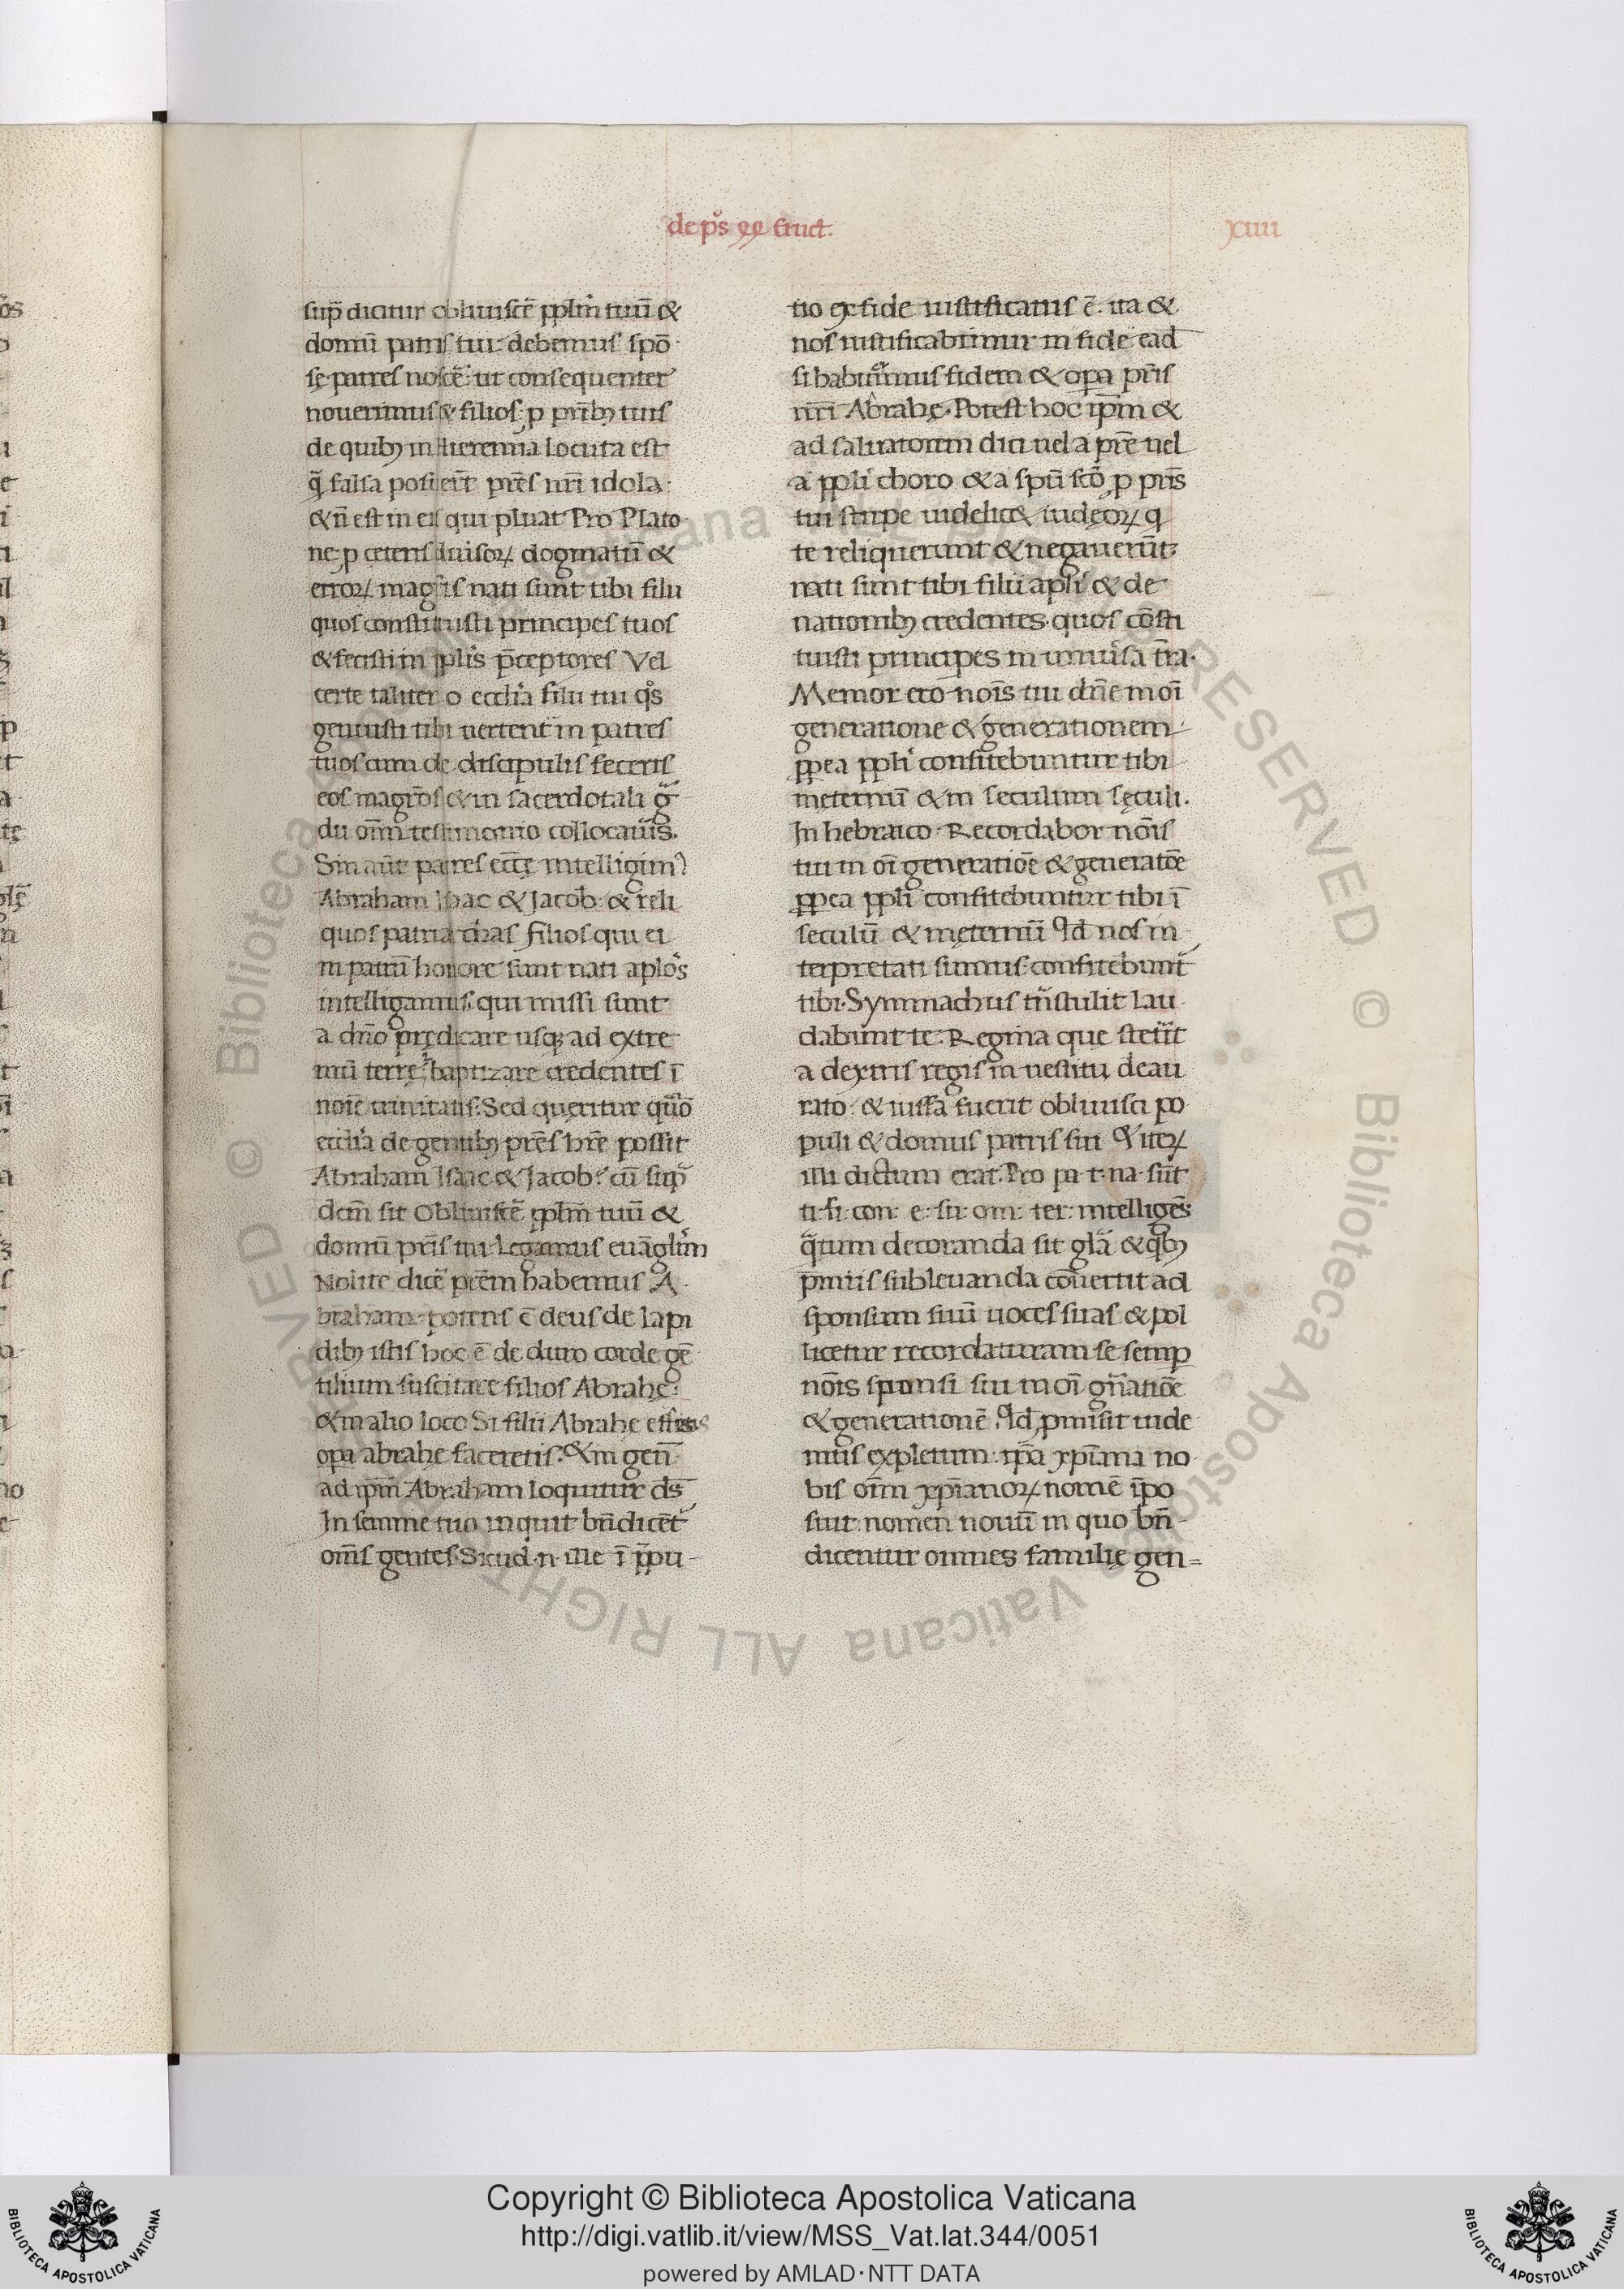 de ps eructͭ.
xiiii
sup̄ dicitur obliuiscẽ ppl̃m tuũ &
domũ patris tui· debemus spō
sę patres noscẽ· ut consequenter
nouerimus & filios· p prĩbꝫ tuis
de quibꝫ in hieremia locuta est
q̃ falsa possiderũt prẽs nr̃i idola·
& ñ est in eis qui pluat Pro Plato
ne· p ceteris diuisoꝝ dogmatũ &
erroꝝ magr̃is nati sunt tibi filii
quos constituisti principes tuos
& fecisti in pplis p̄ceptores Vel
certe taliter o ecclĩa filii tui qͦs
genuisti tibi uertent̃ in patres
tuos cum de discipulis feceris
eos magr̃os & in sacerdotali g̃
du om̃ testimonio collocaũis.
Sin aũt patres ecc̃ę intelligim᾽
Abraham Isaac & Jacob· & reli
quos patriarchas filios qui ei
in patrũ honore sunt nati aplõs
intelligamus· qui missi sunt
a dño prędicare usqꝫ ad extre
mũ terrę· baptizare credentes ĩ
noĩe trinitatis. Sed queritur qͦmo
ecclĩa de gentibꝫ prẽs hr̃e possit
Abraham Isaac & Jacob· cũ sup̃
dcm̃ sit Obliuiscẽ ppl̃m tuũ &
domũ prĩs tui· Legamus euãgl̃im
Nolite dicẽ prẽm habemus A
braham· potens ẽ deus de lapi
dibꝫ istis hoc ẽ de duro corde gẽ
tilium suscitare filios Abrahę·
& in alio loco Si filii Abrahę essetis
opa abrahę faceretis· & in geñ
ad ipm̃ Abraham loquitur d̃s
In semine tuo inquit bñdicẽt
om̃s gentes· Sicud· n· ille ĩ p̃pu-
tio ex fide iustificatus ẽ· ita &
nos iustificabimur in fide ead̃
si habuerimus fidem & opa pr̃is
nr̃i Abrahę· Potest hoc ip̃m &
ad saluatorem dici uel a prẽ uel
a ppl̃i choro & a spũ scõ· p pr̃is
tui stirpe uidelic& iudęoꝝ q
te reliquerunt & negauerũt·
nati sunt tibi filii apl̃i & de
nationibꝫ credentes· quos cõsti
tuisti principes in uniũsa tr̃a·
Memor ero noĩs tui dñe in oĩ
generatione & generationem·
ppea ppl̃i confitebuntur tibi
in eternũ & in seculum sęculi·
In hebraico· Recordabor noĩs
tui in oĩ generatiõe & generatõe
ppea ppl̃i confitebuntur tibi ĩ
seculũ & in ęternũ Qd̃ nos in
terpretati sumus· confitebunt̃
tibi· Symmachus trñstulit lau
dabunt te· Regina que stetit
a dextris regis in uestitu deau
rato· & iussa fuerit obliuisci po
puli & domus patris sui & iteꝝ
illi dictum erat· Pro pa· t· na· sũt
ti· fi· con· e· su· om· ter· intelligẽs
q̃tum decoranda sit gl̃a & qͥbꝫ
p̄miis subleuanda cõuertit ad
sponsum suũ uoces suas· & pol
licetur recordaturam se semp
noĩs sponsi sui in oĩ gñatiõe
& generationẽ· Qd̃ pmisit uide
mus expletum· ip̃a xp̃iana no
bis om̃ xp̃ianoꝝ nomẽ ĩpo
suit· nomen nouũ in quo bñ
dicentur omnes familię gen=
Copyright © Biblioteca Apostolica Vaticana
http://digi.vatlib.it/view/MSS_Vat.lat.344/0051
powered by AMLAD·NTT DATA